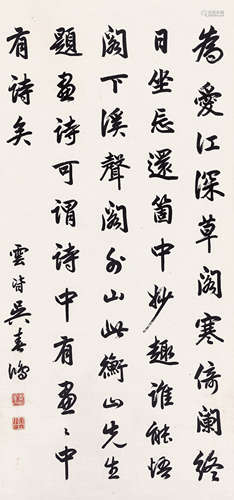 為愛江深草閣寒倚闌終
日坐忘還箇中妙趣誰能悟
閣下溪聲閣外山此衡山先生
題畫詩可謂詩中有畫畫中
有詩矣
雲時吳春鴻